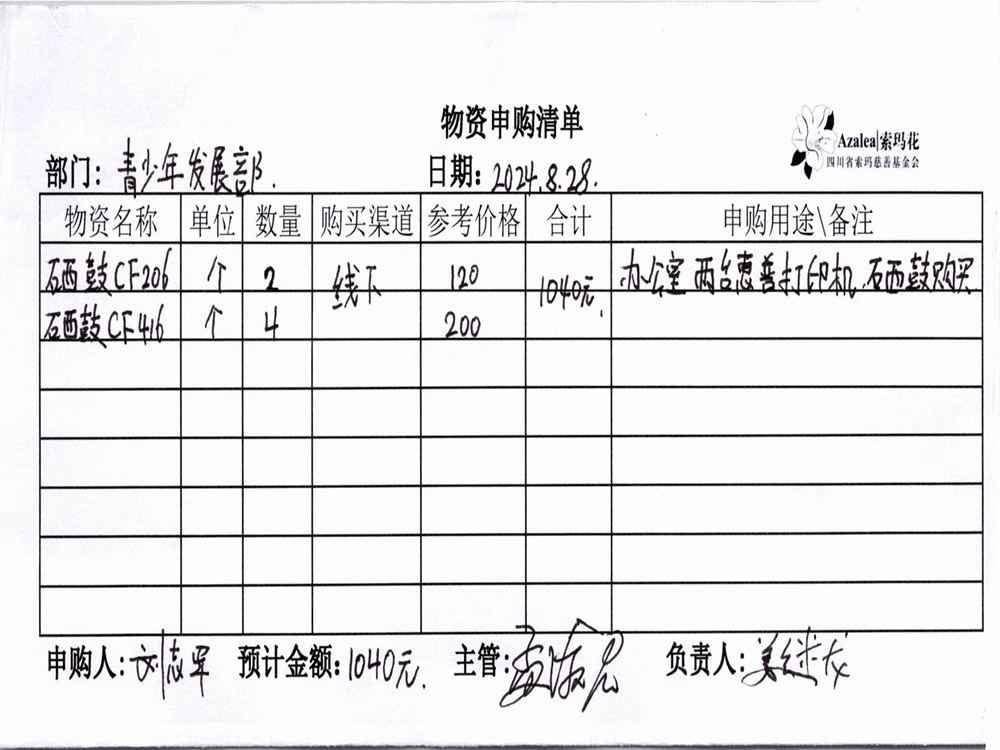 物资申购清单
Azalea|索玛花
四川省索玛慈善基金会
部门：青少年发展部. 日期：2024.8.28.
物资名称 单位 数量 购买渠道 参考价格 合计 申购用途\备注
硒鼓CF206 个 2 线下 120 1040元. 办公室两台惠普打印机,硒鼓购买
硒鼓CF416 个 4 200
申购人：刘志军 预计金额：1040元. 主管：孟 负责人：姜